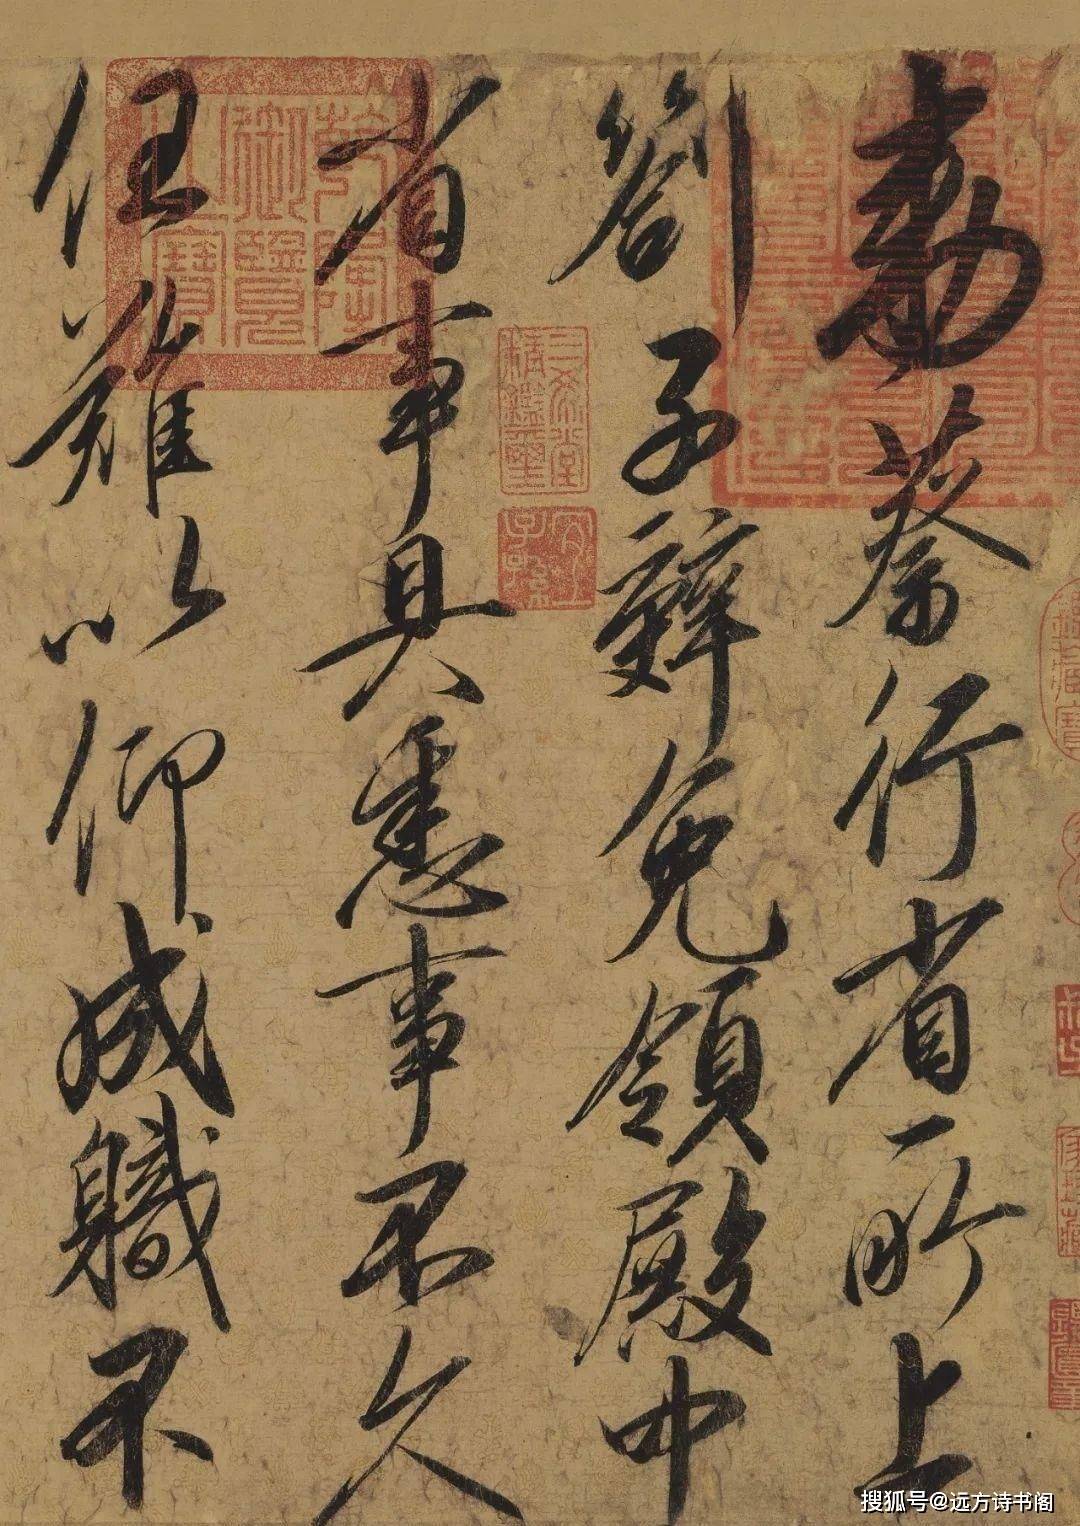 勅蔡行省所上
剳子辭免領殿中
省事具悉事不久
任難以仰成軄不
乾隆御覽之寶
三希堂精鑑璽
宜子孫
搜狐号@远方诗书阁